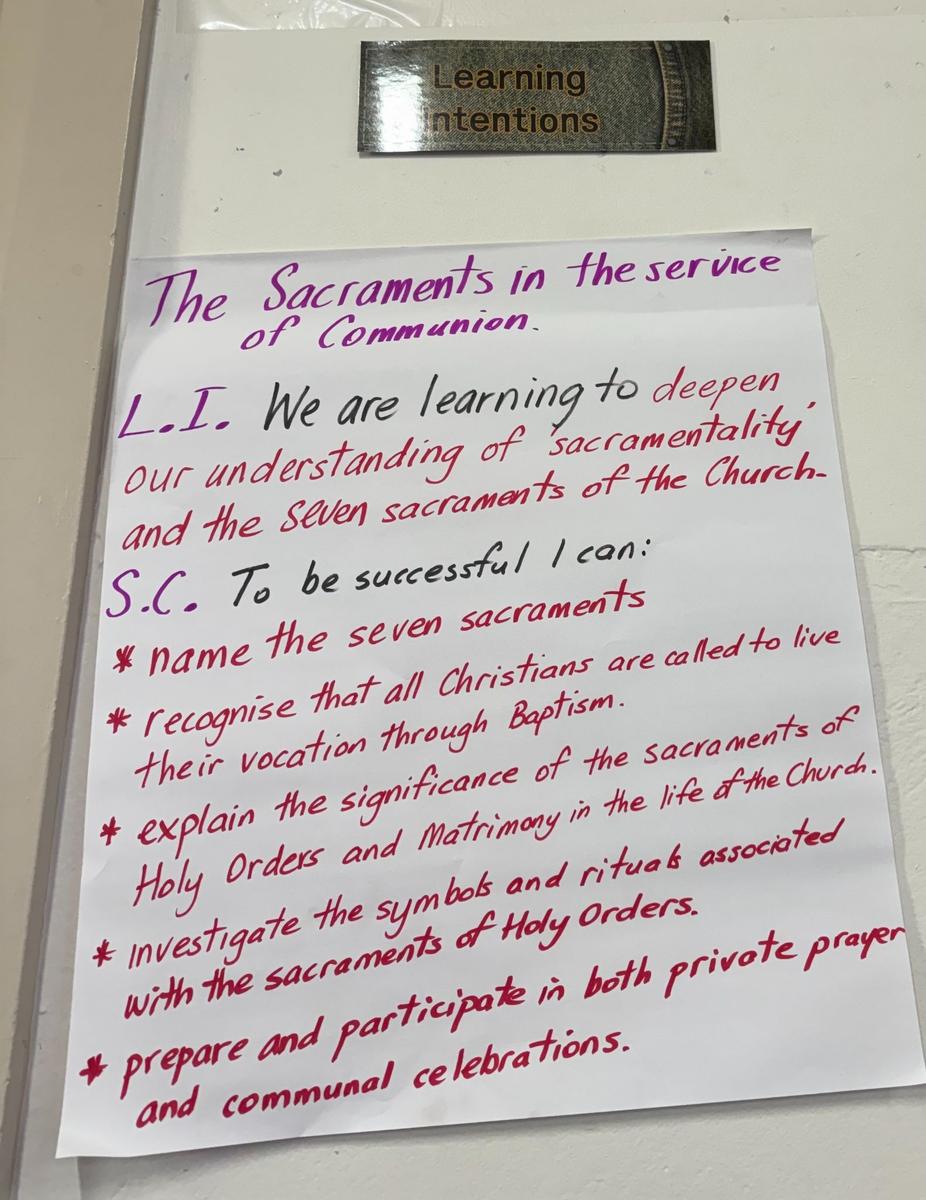 Learning
Intentions
The Sacraments in the service
of Communion.
L.I. We are learning to deepen
our understanding of 'sacramentality'
and the seven sacraments of the Church.
S.C. To be successful I can:
* name the seven sacraments
* recognise that all Christians are called to live
their vocation through Baptism.
* explain the significance of the sacraments of
Holy Orders and Matrimony in the life of the Church.
* investigate the symbols and rituals associated
with the sacraments of Holy Orders.
* prepare and participate in both private prayer
and communal celebrations.